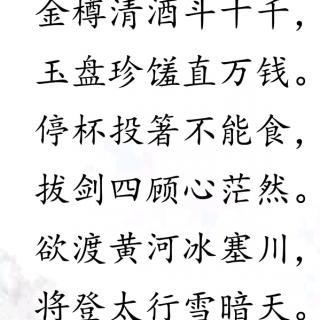 金樽清酒斗十千，
玉盘珍馐直万钱。
停杯投箸不能食，
拔剑四顾心茫然。
欲渡黄河冰塞川，
将登太行雪暗天。